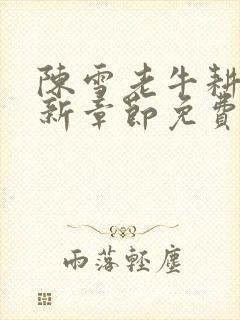 陳雪老牛耕
新章節免費
雨落輕塵